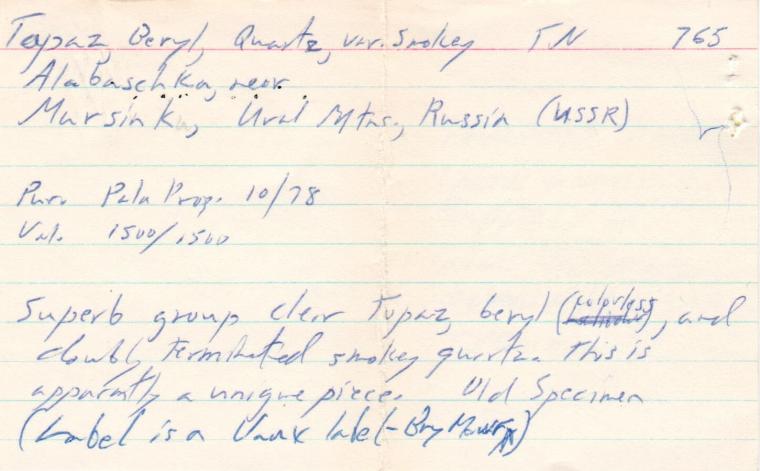 Topaz, Beryl, Quartz, var. smokey TN 765
Alabaschka, near
Mursinka, Ural Mtns., Russia (USSR)
Pur. Pala Prop. 10/78
Val. 1500/1500
Superb group clear Topaz, beryl (colorless), and
doubly terminated smokey quartz. This is
apparently a unique piece. Old Specimen
(Label is a Vaux label - Bryn Mawr)